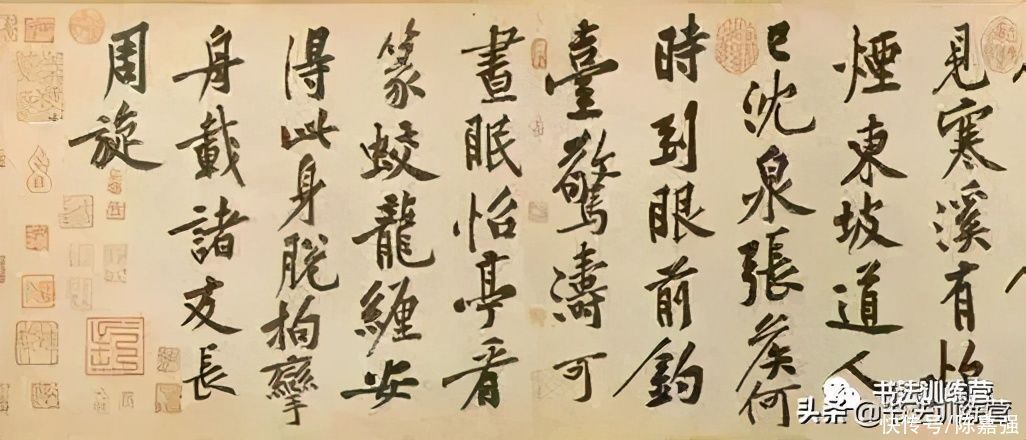 見寒溪有炊
煙東坡道人
已沈泉張侯何
時到眼前釣
臺驚濤可
晝眠怡亭看
篆蛟龍纏安
得此身脫拘攣
舟載諸友長
周旋
书法训练营
头条@书法训练营
快传号/陈嘉强